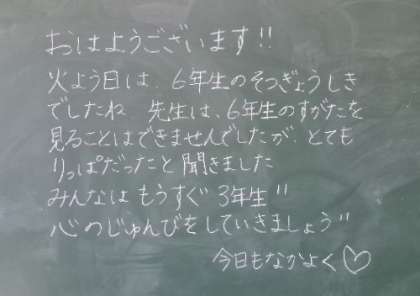 おはようございます!!
火よう日は、6年生のそつぎょうしき
でしたね 先生は、6年生のすがたを
見ることはできませんでしたが、とても
りっぱだったと聞きました
みんなは もうすぐ 3年生!!
心のじゅんびをしていきましょう!!
今日もなかよく♡